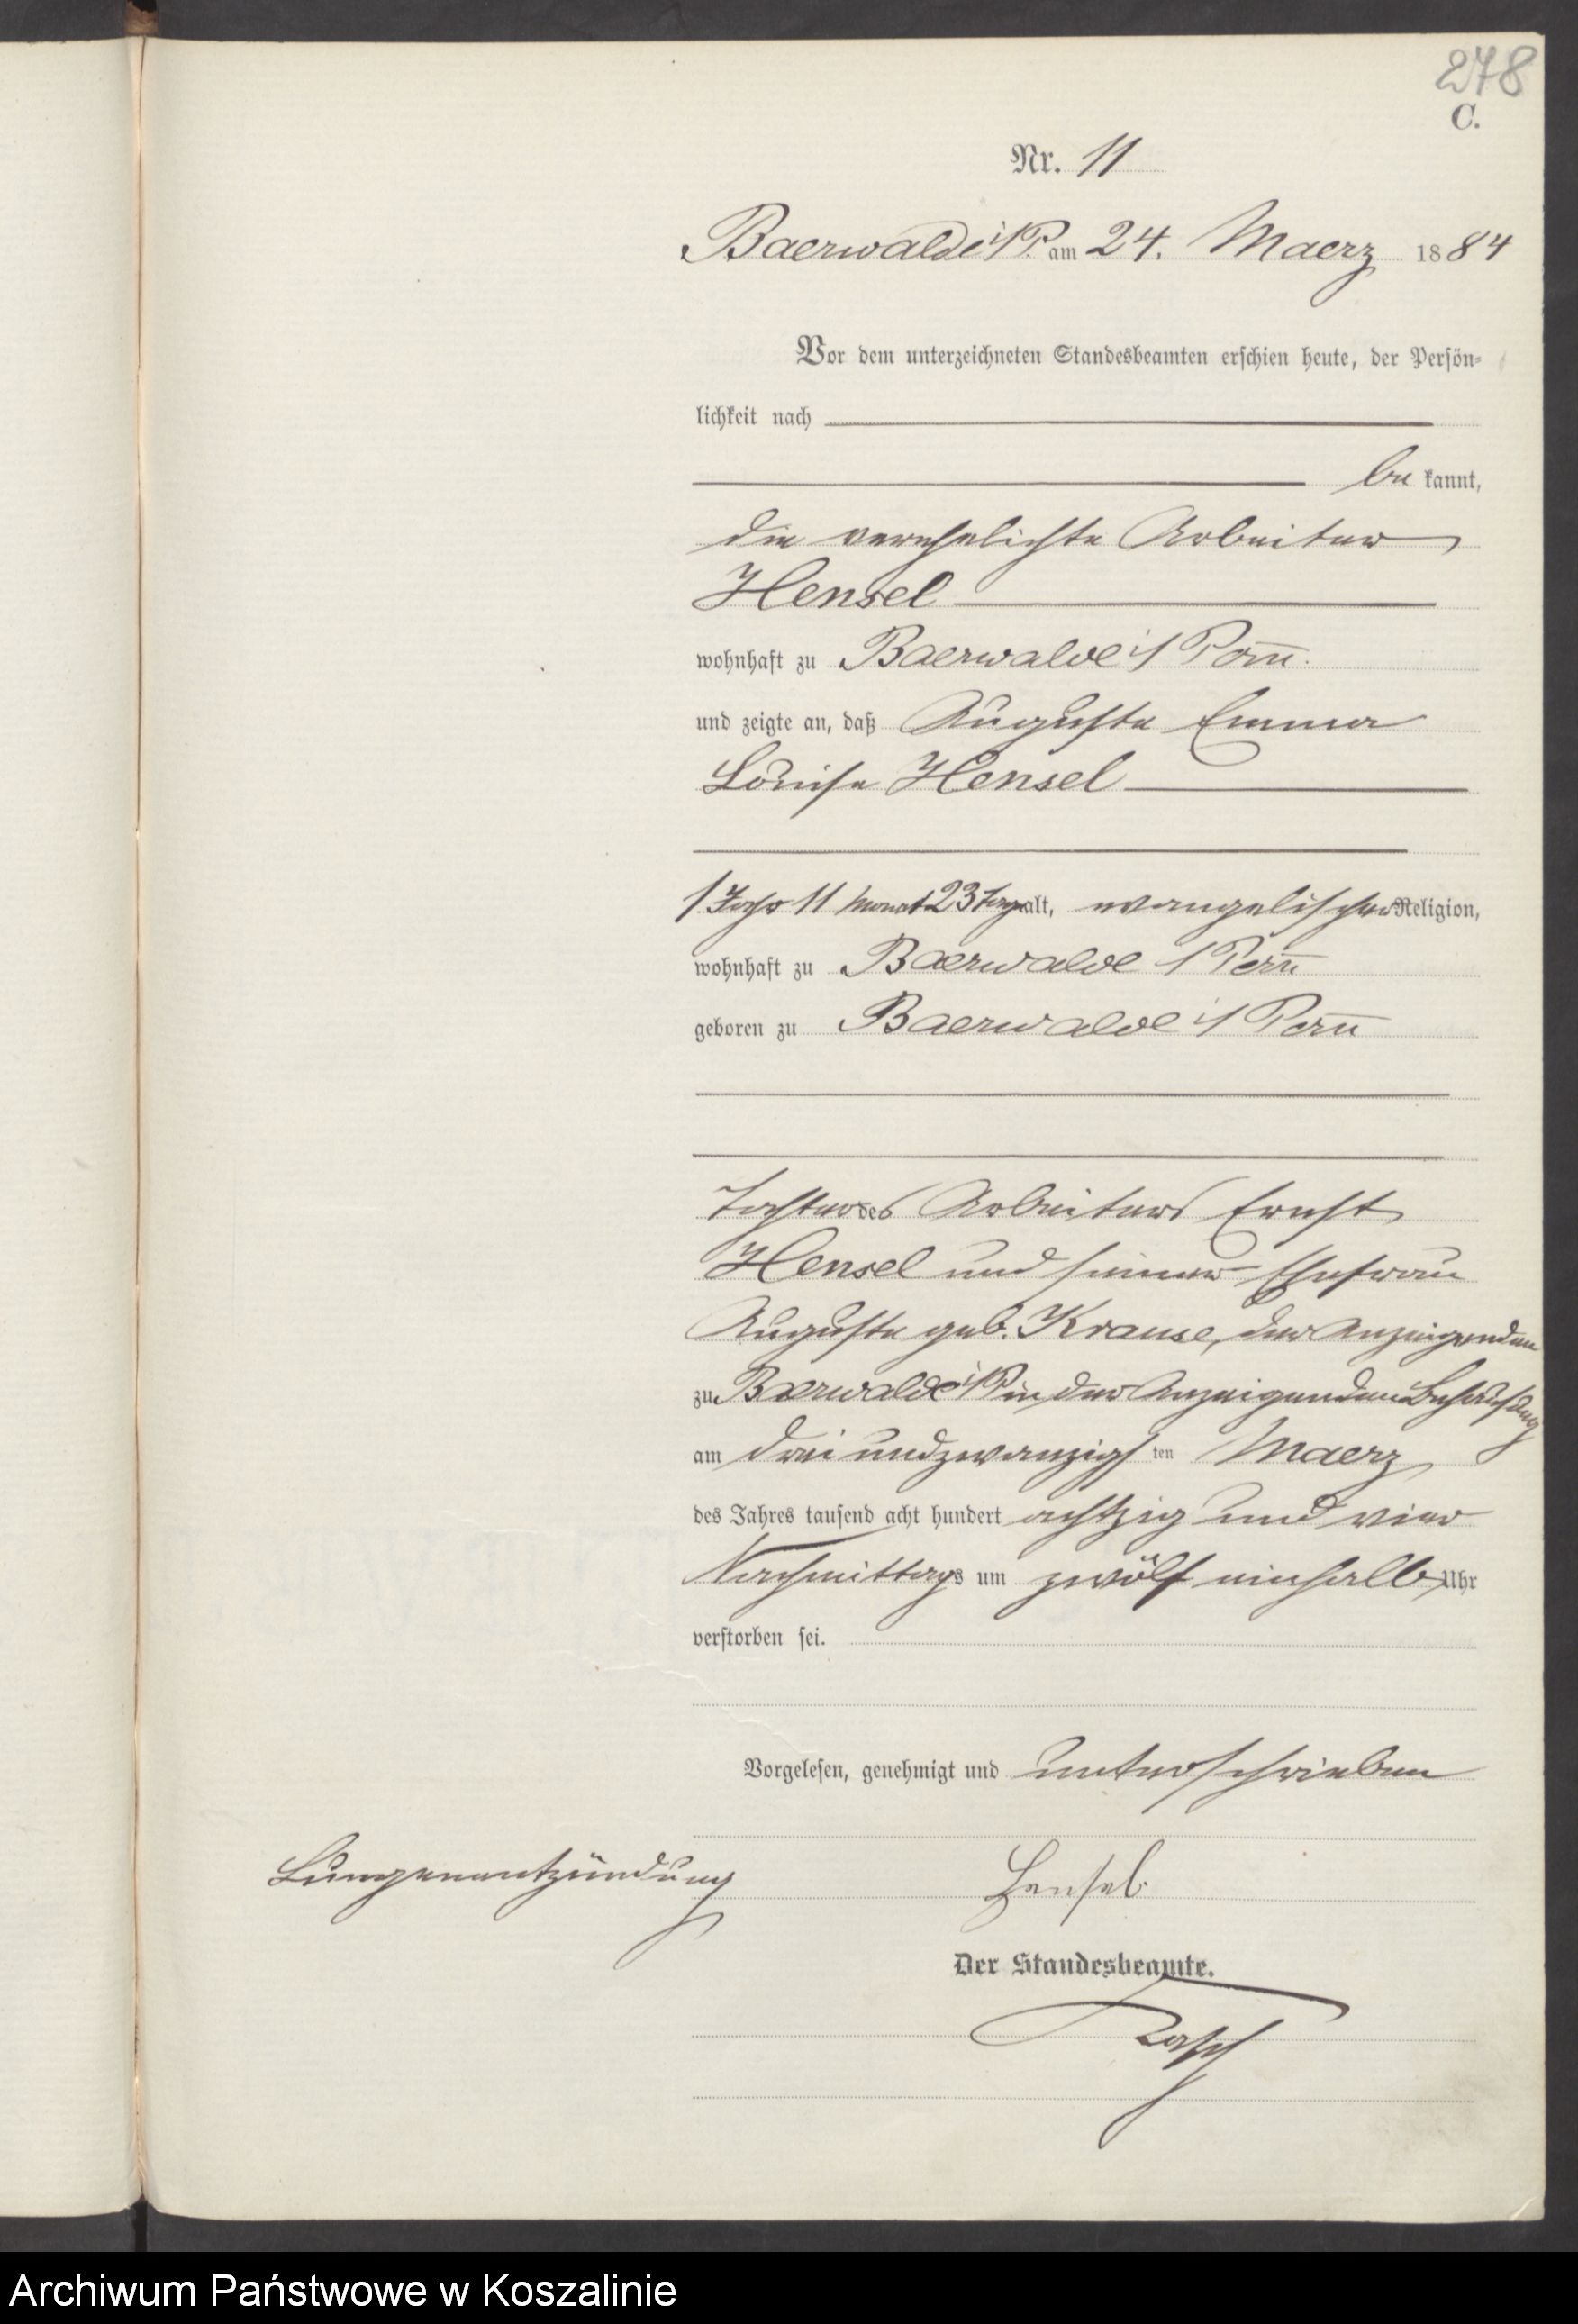 278
C.
Nr. 11
Baerwalde i/P. am 24. Maerz 1884
Vor dem unterzeichneten Standesbeamten erschien heute, der Persön-
lichkeit nach
be kannt,
die verehelichte Arbeiter
Hensel
wohnhaft zu Baerwalde i/Pom̅.
und zeigte an, daß Auguste Emma
Louise Hensel
1 Jahr 11 Monat 23 Tage alt, evangelischer Religion,
wohnhaft zu Baerwalde /Pom̅
geboren zu Baerwalde i/Pom̅
Tochter des Arbeiters Ernst
Hensel und seiner Ehefrau
Auguste geb. Krause, der Anzeigenden
zu Baerwalde i/P in der Anzeigenden Behausung
am drei und zwanzigs ten Maerz
des Jahres tausend acht hundert achtzig und vier
Nachmittags um zwölf einhalb Uhr
verstorben sei.
Vorgelesen, genehmigt und unterschrieben
Lungenentzündung
Hensel
Der Standesbeamte.
Archiwum Państwowe w Koszalinie